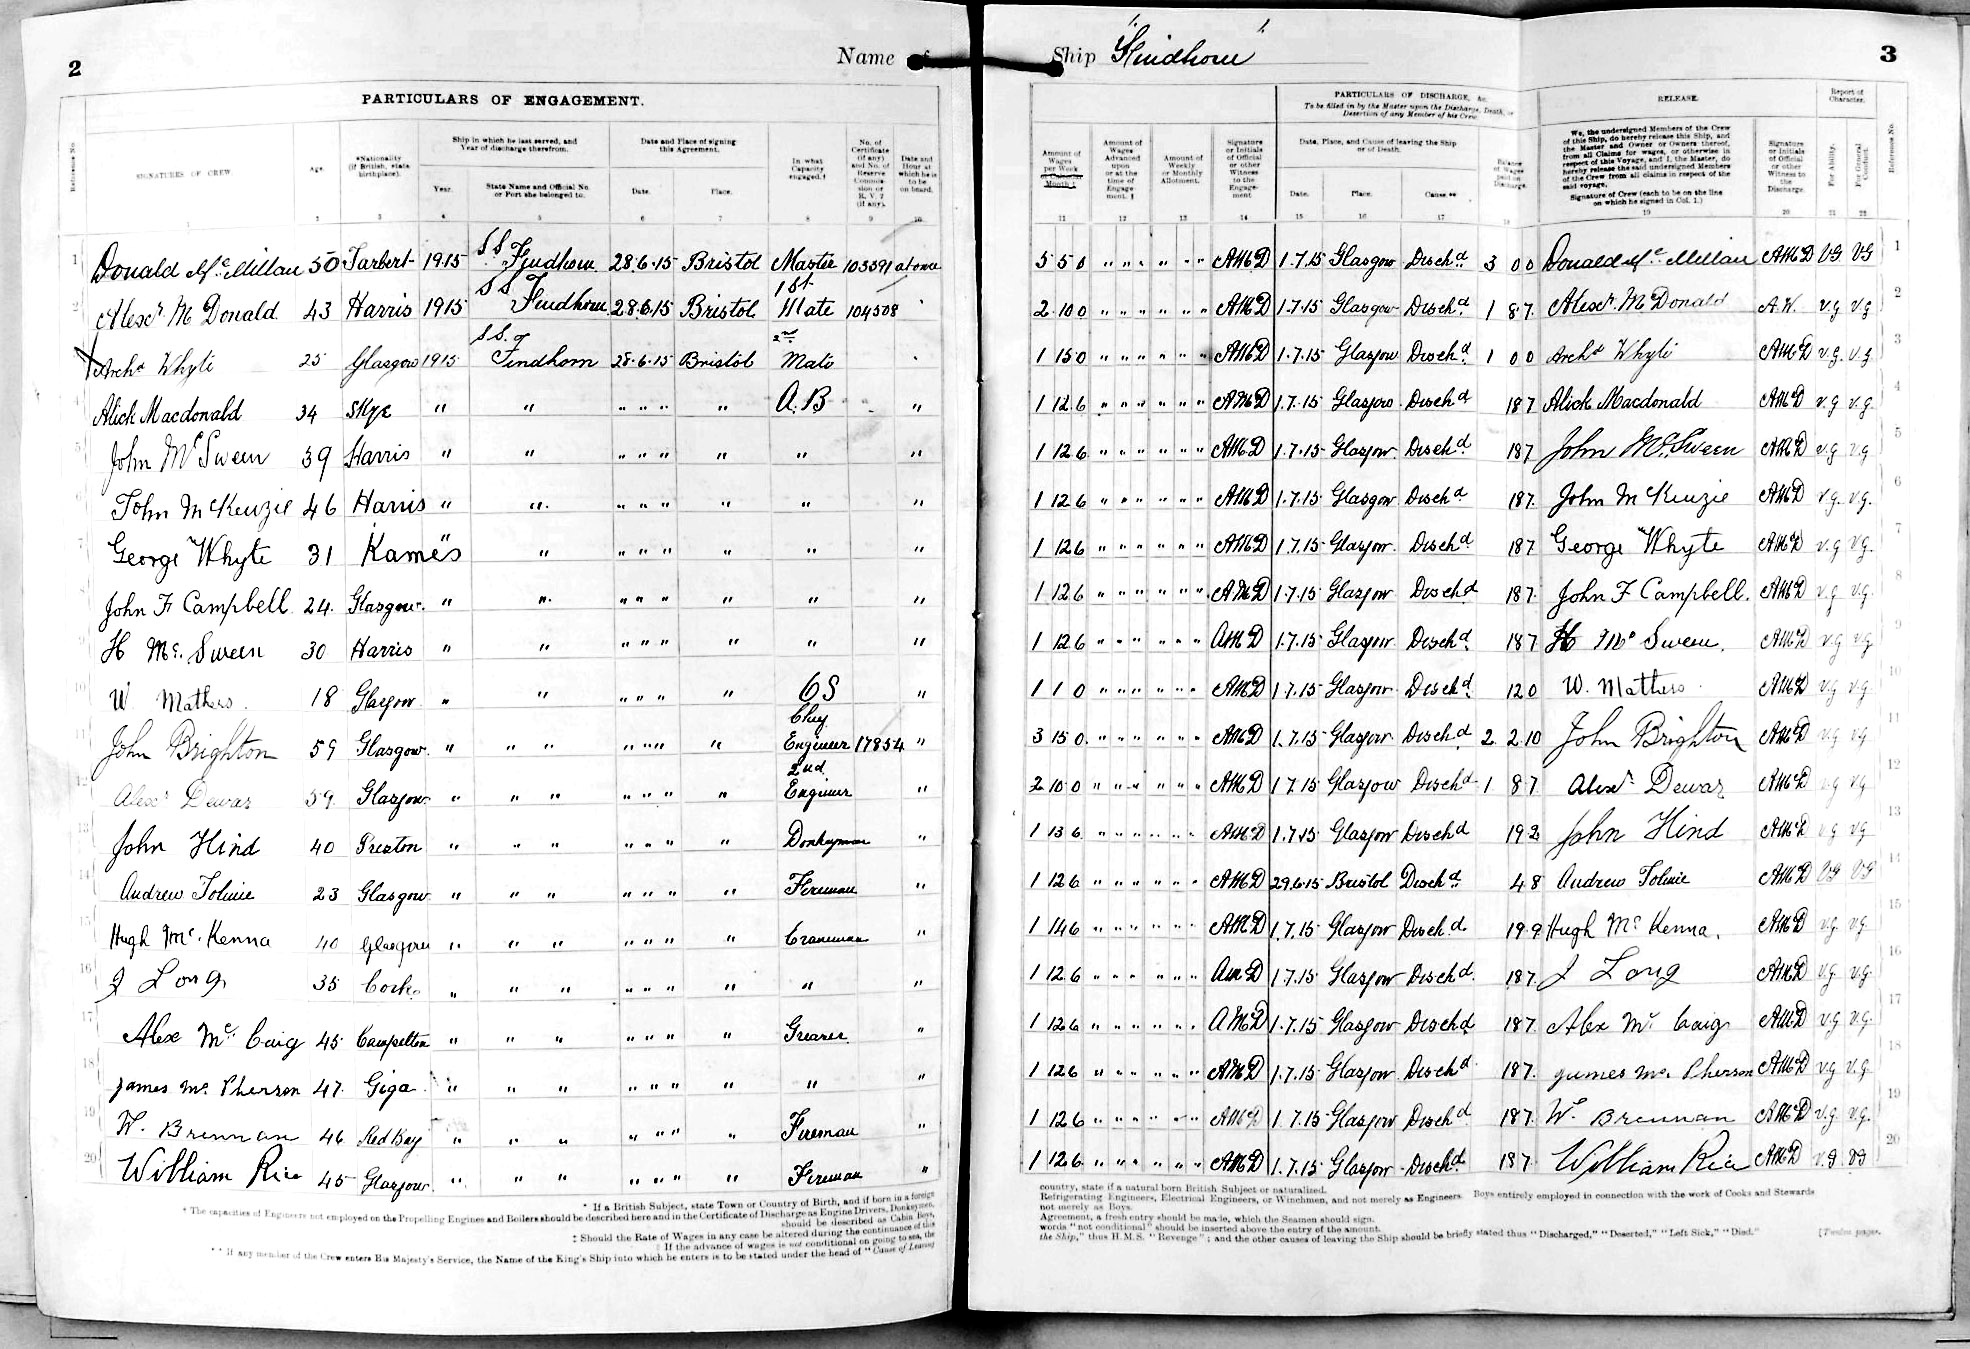 2
Name of
PARTICULARS OF ENGAGEMENT.
Reference No.
SIGNATURES OF CREW
Age.
*Nationality (If British, state birthplace).
Ship in which he last served, and Year of discharge therefrom.
Year.
State Name and Official No. or Port she belonged to.
Date and Place of signing this Agreement.
Date.
Place.
In what Capacity engaged.†
No. of Certificate (if any) and No. of Reserve Commission or R.V.2 (if any).
Date and Hour at which he is to be on board.
2 3 4 5 6 7 8 9 10
1 Donald McMillan 50 Tarbert 1915 S S Findhorn 28.6.15 Bristol Master 103591 at once
2 Alexr. McDonald 43 Harris 1915 S S Findhorn 28.6.15 Bristol 1st Mate 104508 "
Archd Whyte 25 Glasgow 1915 S.S. of Findhorn 28.6.15 Bristol 2nd Mate "
Alick Macdonald 34 Skye " " " " " " A.B "
John McSween 39 Harris " " " " " " " "
John McKenzie 46 Harris " " " " " " " "
George Whyte 31 Kames " " " " " " " "
John F Campbell 24. Glasgow " " " " " " " "
H Mc. Sween 30 Harris " " " " " " " "
10 W Mathers. 18 Glasgow " " " " " " OS "
11 John Brighton 59 Glasgow " " " " " " " Chf Engineer 17854 "
12 Alexr Dewar 59 Glasgow " " " " " " " 2nd Engineer "
13 John Hind 40 Preston " " " " " " " Donkeyman "
14 Andrew Tolmie 23 Glasgow " " " " " " " Fireman "
15 Hugh Mc. Kenna 40 Glasgow " " " " " " " Craneman "
16 J Long 35 Cork " " " " " " " " "
17 Alex Mc Caig 45 Campelton " " " " " " " Greaser "
18 James Mc. Pherson 47. Giga " " " " " " " " "
19 W. Brennan 46 Red Bay " " " " " " " Fireman "
20 William Rice 45 Glasgow " " " " " " " Fireman "
* If a British Subject, state Town or Country of Birth, and if born in a foreign
† The capacities of Engineers not employed on the Propelling Engines and Boilers should be described here and in the Certificate of Discharge as Engine Drivers, Donkeymen,
should be described as Cabin Boys,
‡ Should the Rate of Wages in any case be altered during the continuance of this
§ If the advance of wages is not conditional on going to sea, the
** If any member of the Crew enters His Majesty's Service, the Name of the King's Ship into which he enters is to be stated under the head of "Cause of Leaving
Ship "Findhorn"
3
PARTICULARS OF DISCHARGE, &c.
To be filled in by the Master upon the Discharge, Death, or Desertion of any Member of his Crew
RELEASE.
Report of Character.
Amount of Wages per Week or Calendar Month ‡
Amount of Wages Advanced upon or at the time of Engagement. §
Amount of Weekly or Monthly Allotment.
Signature or Initials of Official or other Witness to the Engagement
Date, Place, and Cause of leaving the Ship or of Death.
Date.
Place.
Cause.**
Balance of Wages paid on Discharge.
We, the undersigned Members of the Crew of this Ship, do hereby release this Ship, and the Master and Owner or Owners thereof, from all Claims for wages, or otherwise in respect of this Voyage, and I, the Master, do hereby release the said undersigned Members of the Crew from all claims in respect of the said voyage.
Signature of Crew (each to be on the line on which he signed in Col. 1.)
Signature or Initials of Official or other Witness to the Discharge.
For Ability.
For General Conduct.
Reference No.
11 12 13 14 15 16 17 18 19 20 21 22
5 5 0 " " " " " " AMD 1.7.15 Glasgow Dischd. 3 0 0 Donald McMillan AMD VG VG 1
2 10 0 " " " " " " AMD 1.7.15 Glasgow Dischd. 1 8 7. Alexr. McDonald A.W. v.g v.g 2
1 15 0 " " " " " " AMD 1.7.15 Glasgow Dischd. 1 0 0 Archd Whyte AMD v.g. v.g. 3
1 12 6 " " " " " " AMD 1.7.15 Glasgow Dischd 18 7 Alick Macdonald AMD v.g v.g. 4
1 12 6 " " " " " " AMD 1.7.15 Glasgow Dischd 18 7 John Mc.Sween AMD v.g v.g. 5
1 12 6 " " " " " " AMD 1.7.15 Glasgow Dischd 18 7. John McKenzie AMD v.g. v.g. 6
1 12 6 " " " " " " AMD 1.7.15 Glasgow. Dischd 18 7 George Whyte AMD v.g v.g. 7
1 12 6 " " " " " " AMD 1.7.15 Glasgow Dischd 18 7. John F Campbell. AMD v.g v.g. 8
1 12 6 " " " " " " AMD 1.7.15 Glasgow Dischd. 18 7 H Mc Sween. AMD v.g v.g. 9
1 1 0 " " " " " " AMD 1.7.15 Glasgow Dischd. 12 0 W. Mathers. AMD v.g v.g. 10
3 15 0. " " " " " " AMD 1.7.15 Glasgow Dischd. 2 2 10 John Brighton AMD v.g v.g 11
2 10 0 " " " " " " AMD 1.7.15 Glasgow Dischd 1 8 7 Alexr. Dewar AMD v.g v.g. 12
1 13 6. " " " " " " AMD 1.7.15 Glasgow Dischd 19 2 John Hind AMD v.g v.g. 13
1 12 6 " " " " " " AMD 29.6.15 Bristol Dischd. 4 8 Andrew Tolmie AMD VG VG 14
1 14 6 " " " " " " AMD 1.7.15 Glasgow Dischd. 19 9 Hugh Mc Kenna. AMD v.g. v.g. 15
1 12 6 " " " " " " AMD 1.7.15 Glasgow Dischd. 18 7. J Long AMD v.g. v.g. 16
1 12 6 " " " " " " AMD 1.7.15 Glasgow Dischd 18 7 Alex Mc Caig AMD v.g v.g. 17
1 12 6 " " " " " " AMD 1.7.15 Glasgow Dischd. 18 7. James Mc. Pherson AMD v.g v.g. 18
1 12 6 " " " " " " AMD 1.7.15 Glasgow Dischd. 18 7. W. Brennan AMD v.g. v.g. 19
1 12 6 " " " " " " AMD 1.7.15 Glasgow Dischd. 18 7. William Rice AMD v.g. v.g 20
country, state if a natural born British Subject or naturalized.
Refrigerating Engineers, Electrical Engineers, or Winchmen, and not merely as Engineers. Boys entirely employed in connection with the work of Cooks and Stewards
not merely as Boys.
Agreement, a fresh entry should be made, which the Seamen should sign.
words "not conditional" should be inserted above the entry of the amount.
the Ship," thus H.M.S. "Revenge"; and the other causes of leaving the Ship should be briefly stated thus "Discharged," "Deserted," "Left Sick," "Died."
[Twelve pages.